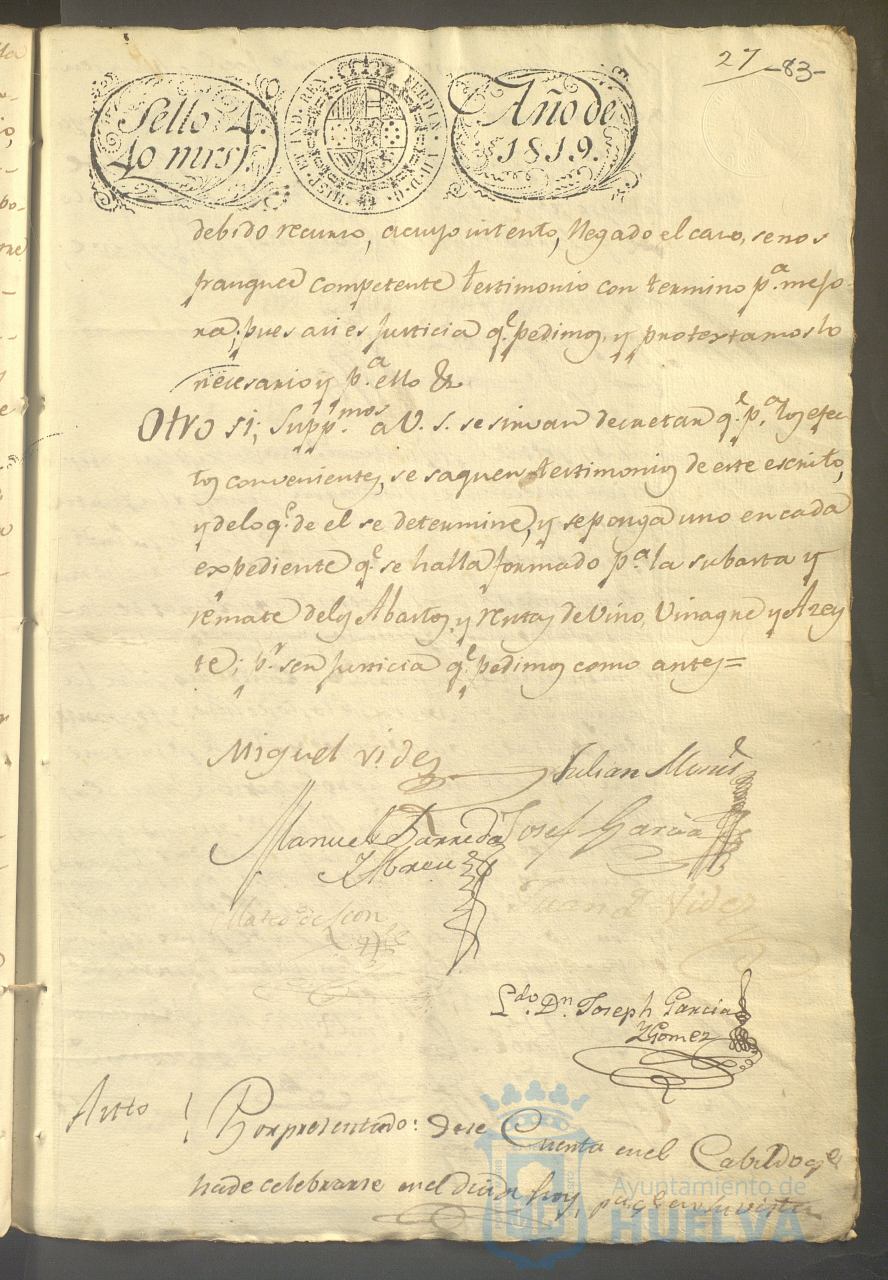 27 -83-
Sello 4.
40 mrs.
HISP. ET IND. REX. FERDIN. VII. D. G.
Año de
1819.
debido recurso, a cuyo intento, llegado el caso, se nos
franquee competente testimonio con termino p.a mejo-
ra; pues asi es justicia q.e pedimos, y protextamos lo
necesario y p.a ello &
Otro si; Supp.mos a V. S. se sirvan decretar q.e p.a los efec
tos convenientes, se saquen testimonios de este escrito,
y de lo q.e de el se determine, y se ponga uno en cada
expediente q.e se halla formado p.a la subasta y
remate de los Abastos, y rentas de Vino, Vinagre y Azey
te; p.r ser justicia q.e pedimos como antes =
Miguel Videz
Julian
Manuel Barreda
Y Abreu
Josef Garcia
de Leon
Juan Videz
L.do D.n Joseph Garcia
Y Gomez
Autto
Por presentado: Dese Cuenta en el Cabildo q.e
ha de celebrarse en el dia de hoy, p.a q.e en su vista
Ayuntamiento de
HUELVA